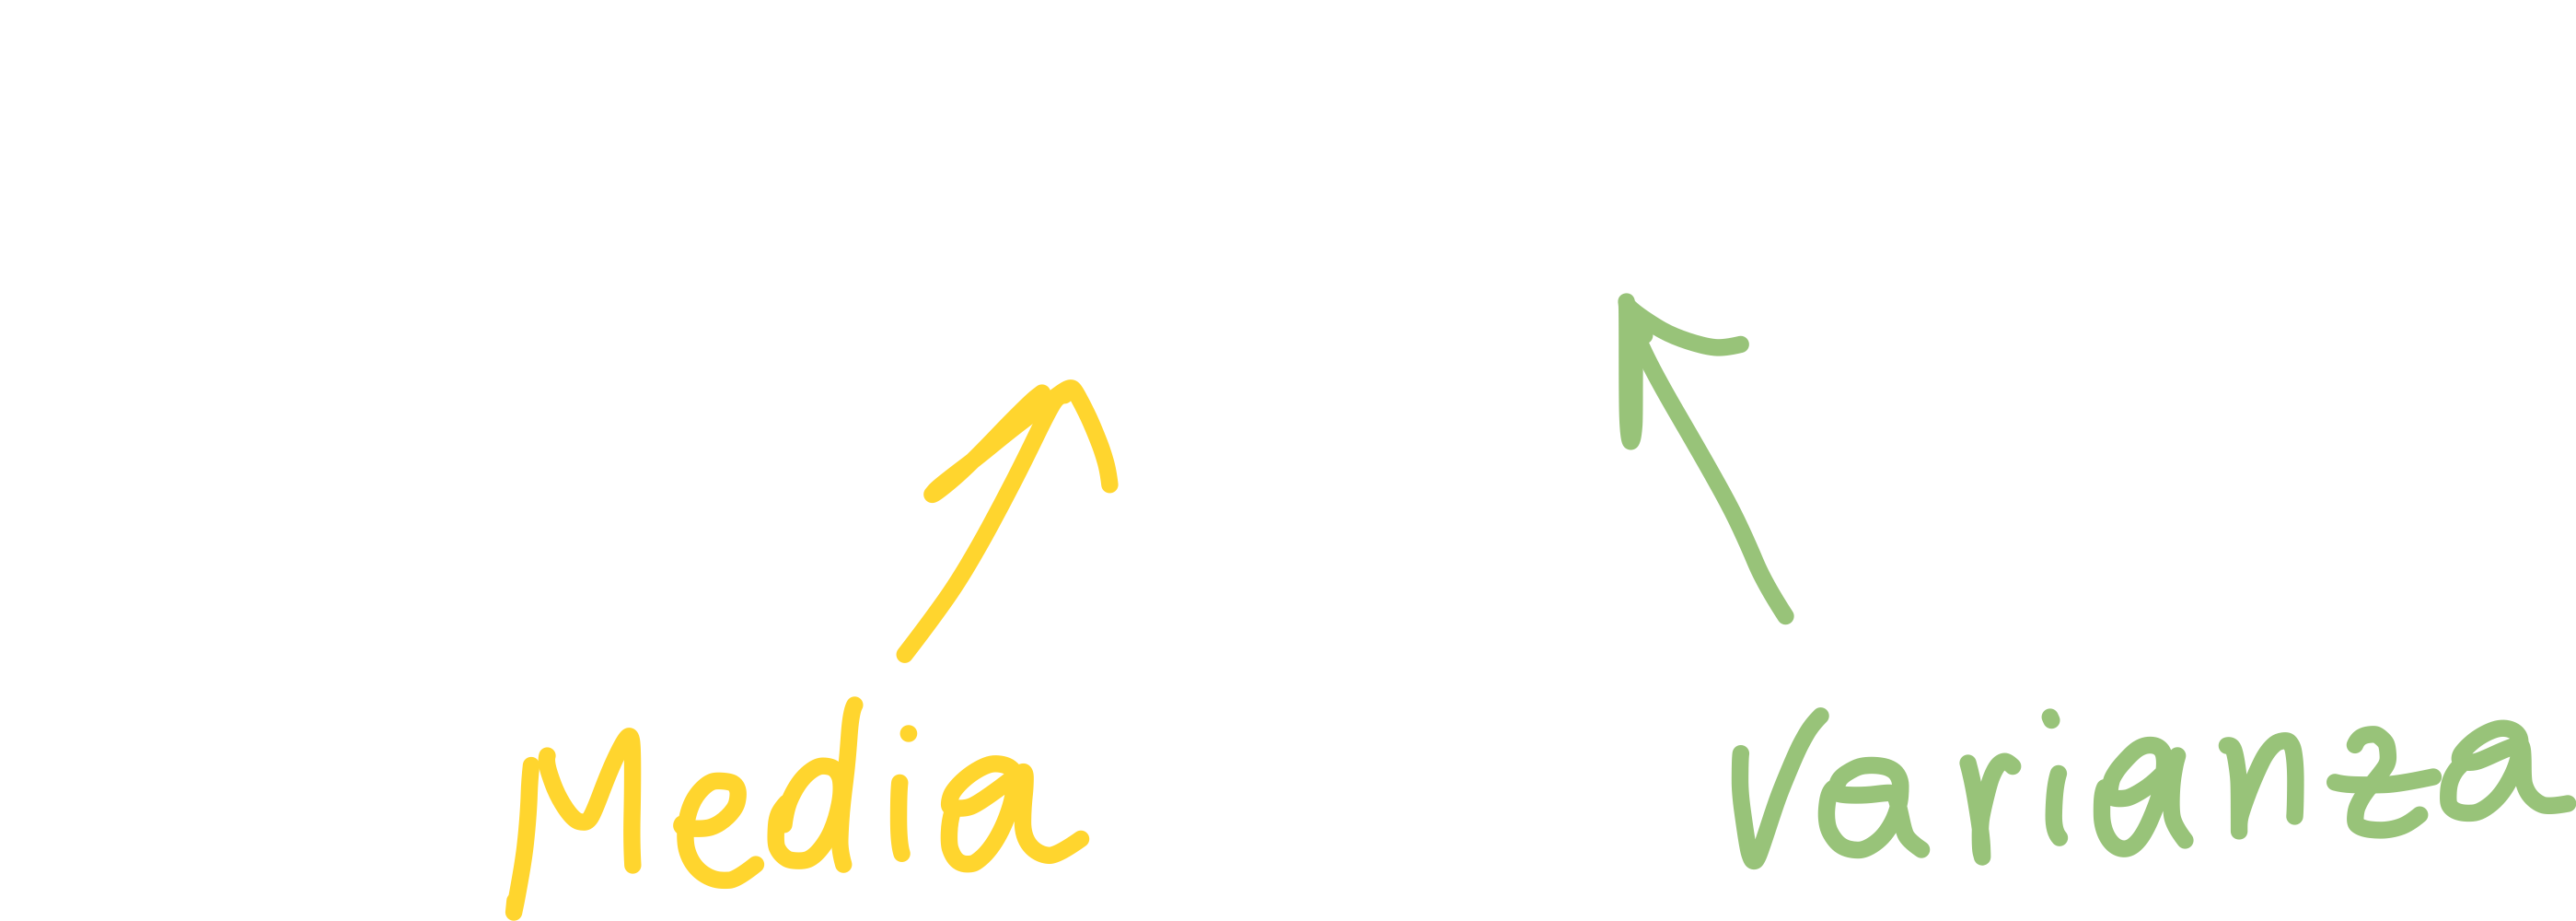 Media Varianza